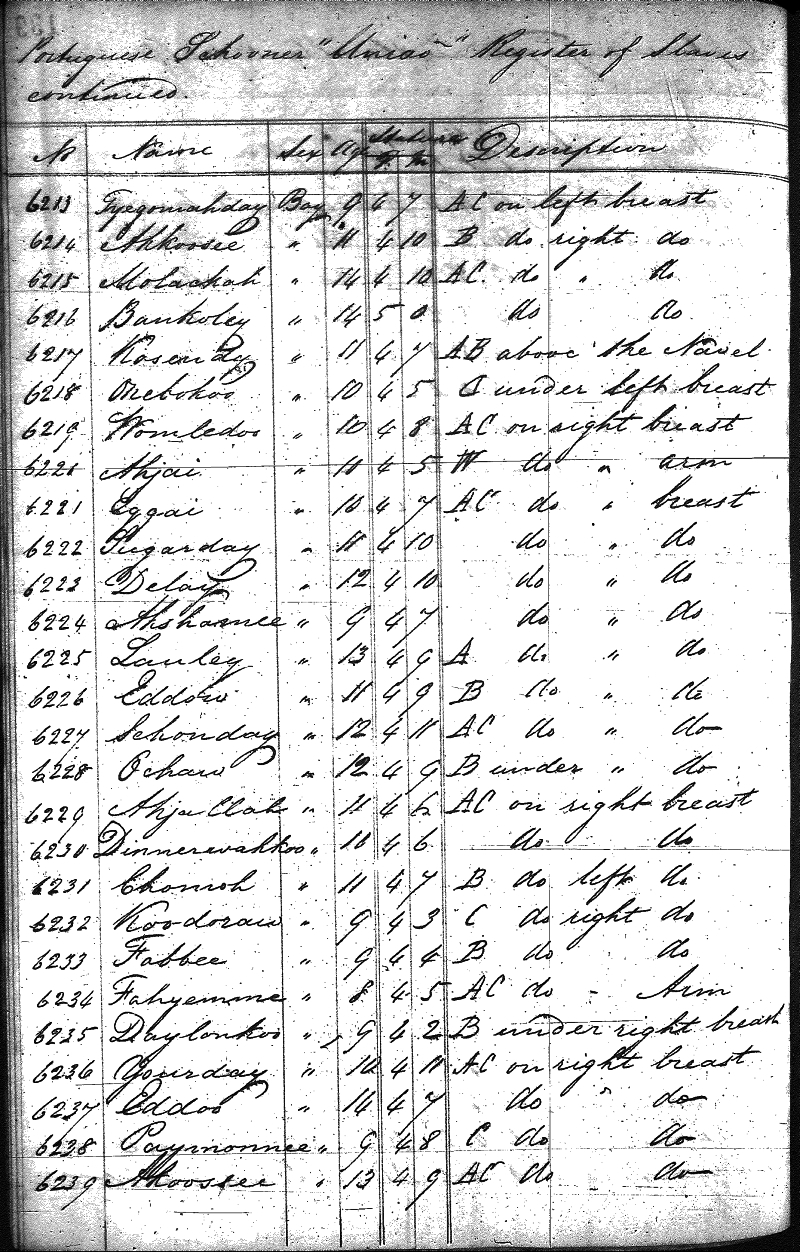 Portuguese Schooner "União" Register of Slaves
continued.
No Name Sex Age Stature Description
F. In
6213 Tyegomahday Boy 9 4 7 AC on left breast
6214 Ahkoosee " 11 4 10 B do right do
6215 Molachah " 14 4 10 AC. do " do
6216 Bankoley " 14 5 0 do do
6217 Kosenday " 11 4 7 AB above the Navel
6218 Onebokoo " 10 4 5 C under left breast
6219 Womledoo " 10 4 8 AC on right breast
6220 Ahjai " 4 5 W do " arm
6221 Eggai " 10 4 7 AC do " breast
6222 Sugarday " 11 4 10 do " do
6223 Delay " 12 4 10 do " do
6224 Ahshamee " 9 4 7 do " do
6225 Lauley " 13 4 9 A do " do
6226 Eddow " 11 4 9 B do " do
6227 Schonday " 12 4 11 AC do " do
6228 Ochaw " 12 4 9 B under " do
6229 Ahja Clah " 11 4 AC on right breast
6230 Dinnerwahkoo " 10 4 6 do do
6231 Chomoh " 11 4 7 B do left do
6232 Koodoraw " 9 4 3 C do right do
6233 Fabbee " 9 4 4 B do do
6234 Fahyemme " 8 4 5 AC do - Arm
6235 Daylonkoo " 9 4 2 B under right breast
6236 Yourday " 4 11 AC on right breast
6237 Eddoo " 14 4 7 do " do
6238 Paymonnee " 9 4 8 C do do
6239 Akoossee " 13 4 9 AC do do